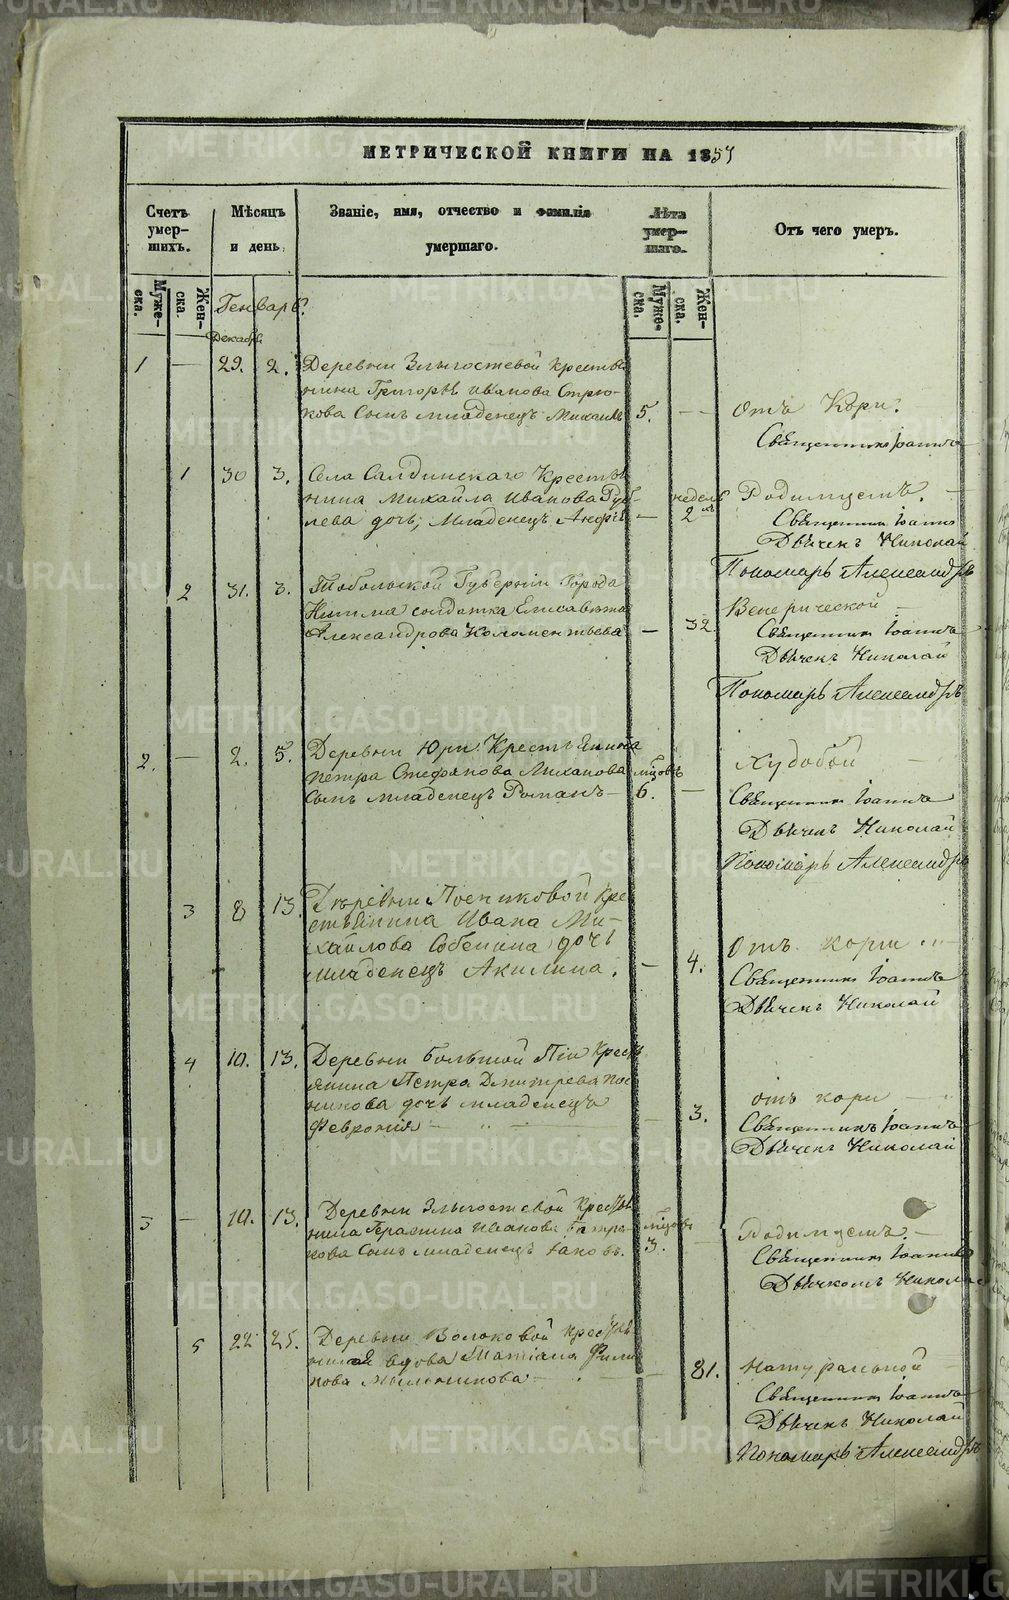 МЕТРИЧЕСКОЙ КНИГИ НА 1857
Счетъ умер-шихъ.
Мѣсяцъ и день.
Званіе, имя, отчество и фамилія умершаго.
Лѣта умер-шаго.
Отъ чего умеръ.
Муже-ска.
Жен-ска.
Муже-ска.
Жен-ска.
Генварь.
Декабр.
1 — 29. 2. Деревни Злыгостевой Крестья
нина Григорья Иванова Стрю-
кова Сынъ младенецъ Михаилъ 5. —
Отъ Кори.
Священникъ Іоаннъ
1 30 3. Села Салдинскаго Крестья
нина Михайла Иванова Руб-
лева дочь, Младенецъ — недель 2
Родимцемъ.
Священникъ Іоаннъ
Дьячекъ Николай
Пономарь Александръ
2 31. 3. Тобольской Губерніи Города
солдатка Елисавета
Александрова Коломентьева — 32.
Венерической
Священникъ Іоаннъ
Дьячекъ Николай
Пономарь Александръ
2. — 2. 5. Деревни Юри. Крестьянина
Петра Стефанова
Сынъ младенецъ Романъ — 6. —
Худобой
Священникъ Іоаннъ
Дьячекъ Николай
Пономарь Александръ
3 8 13. Деревни Посниковой Кре
стьянина Ивана Ми-
хайлова Собенина дочь
младенецъ Акилина. — 4.
Отъ кори
Священникъ Іоаннъ
Дьячекъ Николай
4 10. 13. Деревни Большой Крест
янина Петра Дмитрева Пос
никова дочь младенецъ
Феврония — 3.
отъ кори
Священникъ Іоаннъ
Дьячекъ Николай
3 — 10. 13. Деревни Злыгостевой Крестья
нина Герасима Иванова
кова Сынъ младенецъ Іаковъ. 3. —
Родимцемъ.
Священникъ Іоаннъ
Дьячкомъ
5 22 25. Деревни Волоковой Крестья
вдова Фили
пова Мельникова — 81.
Натуральной
Священникъ Іоаннъ
Дьячекъ Николай
Пономарь Александръ
METRIKI.GASO-URAL.RU